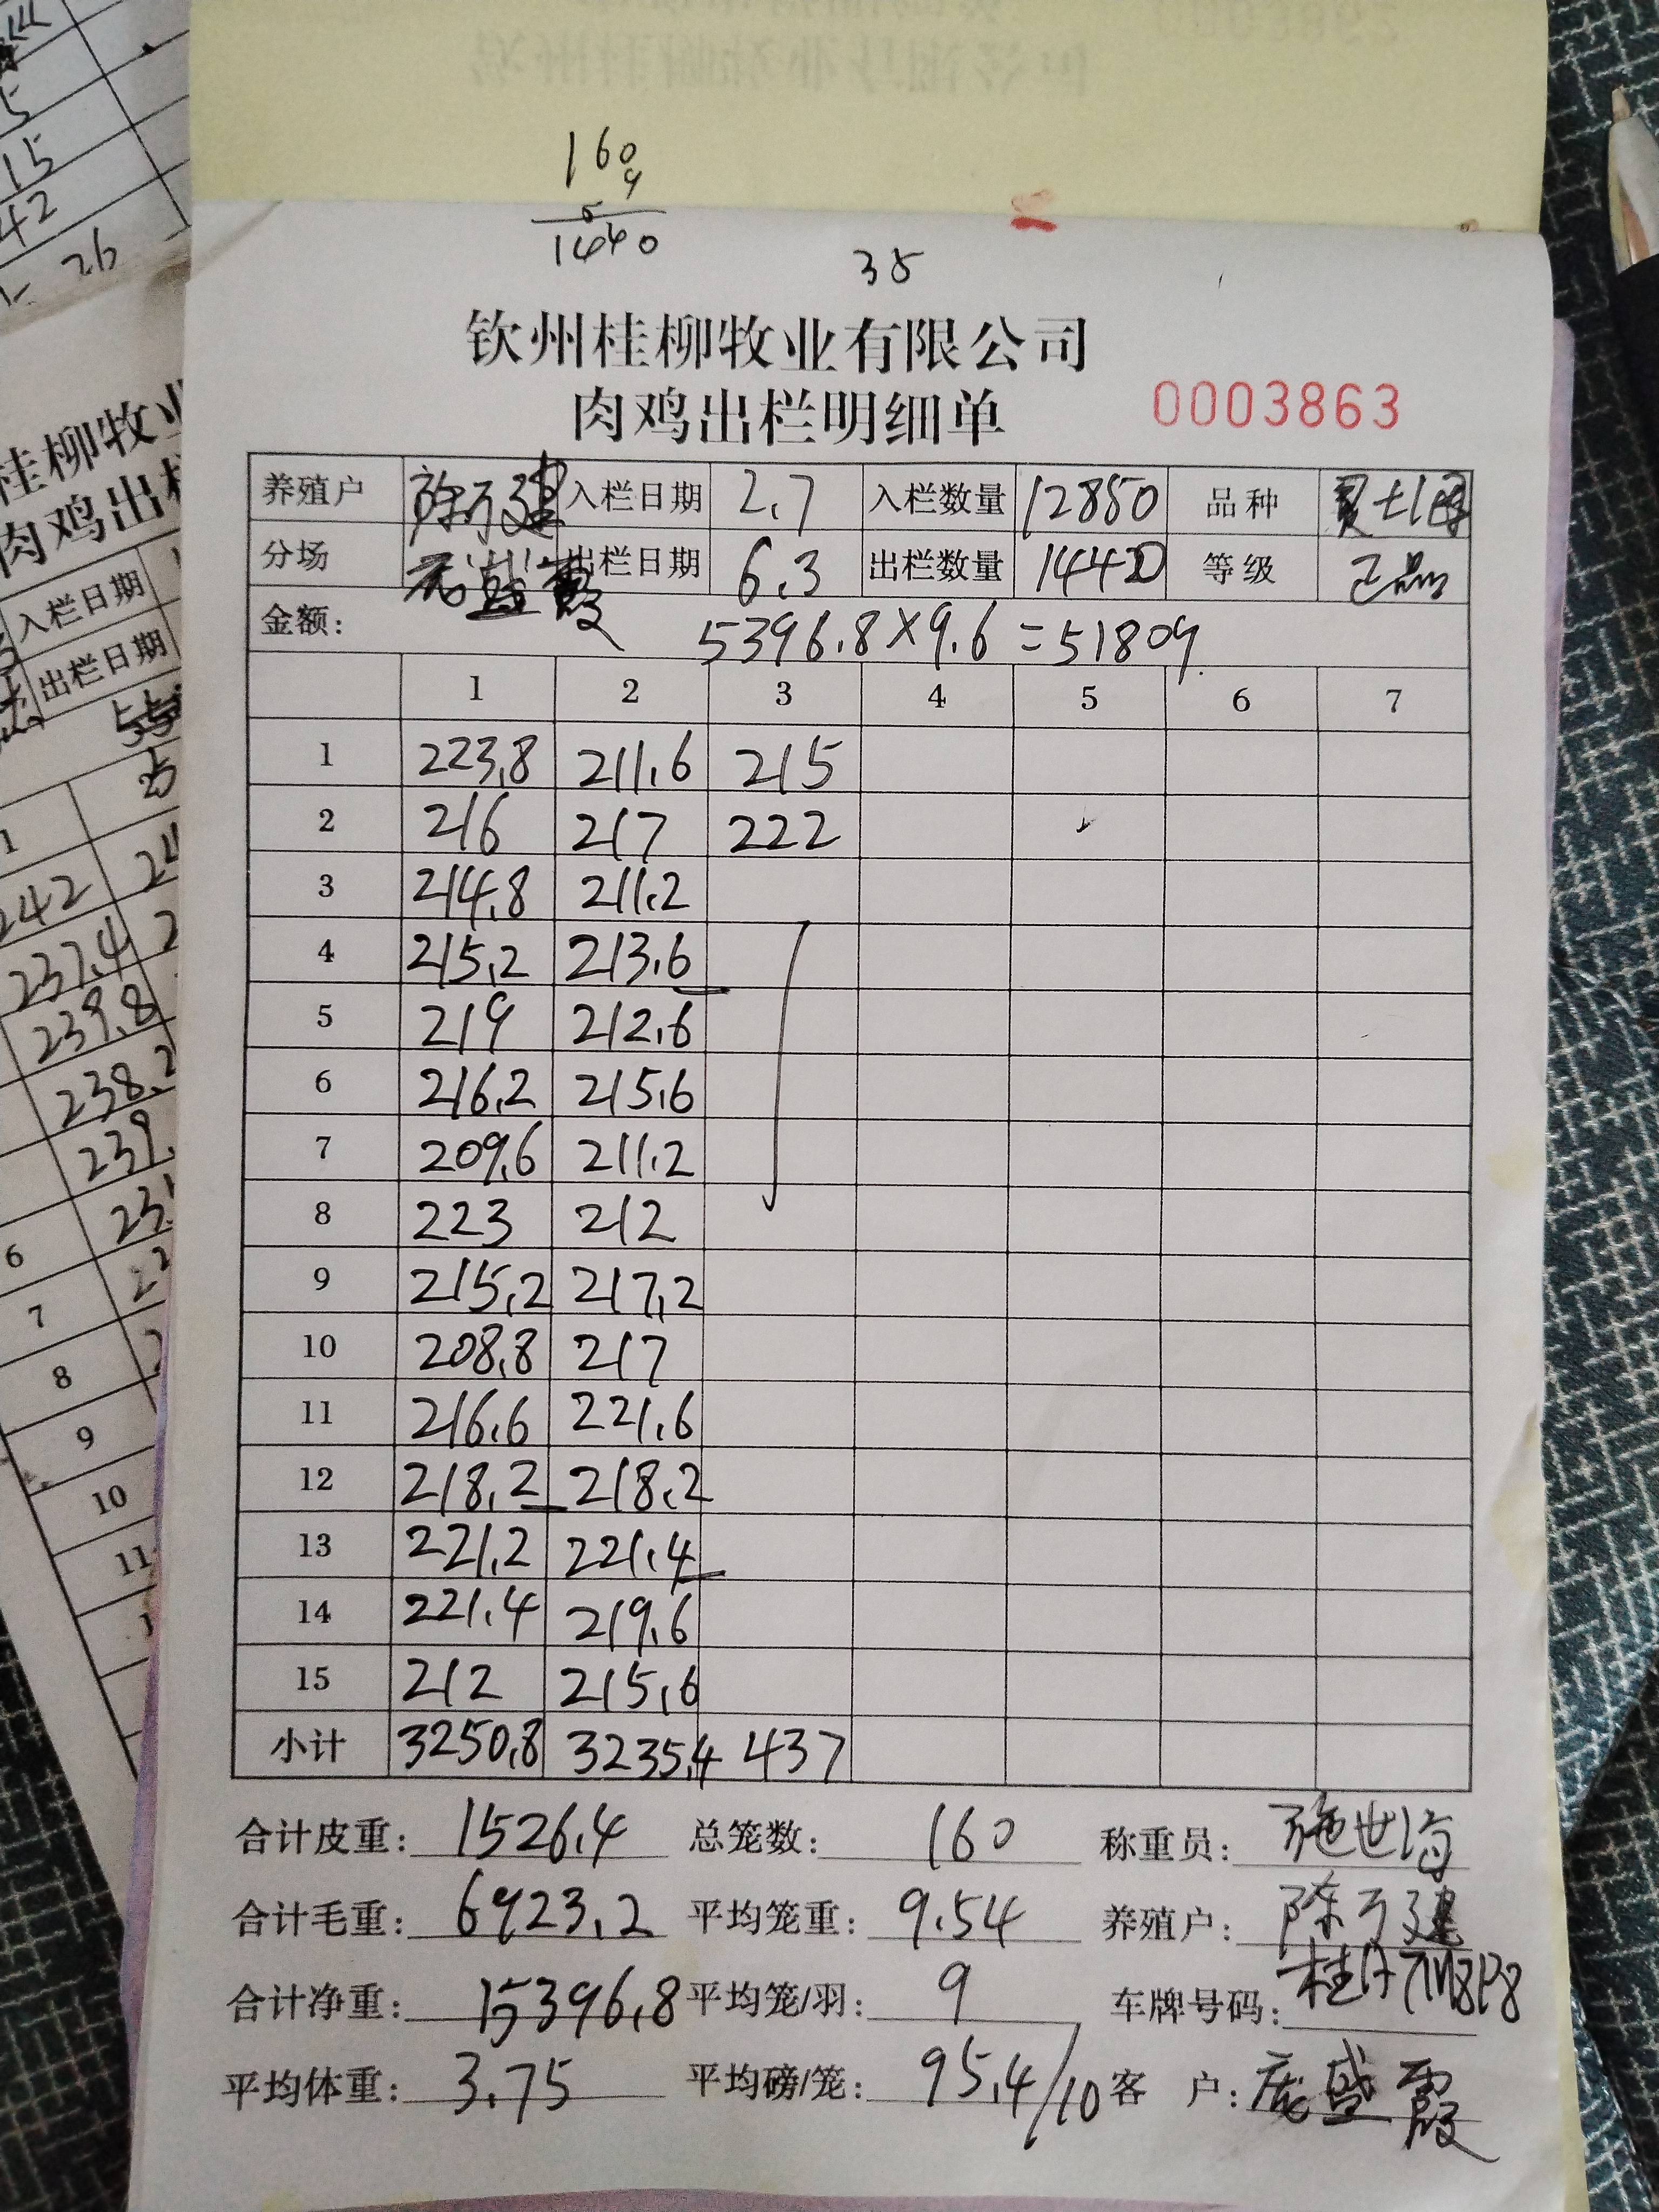 160
9
1440
35
钦州桂柳牧业有限公司
肉鸡出栏明细单 0003863
养殖户 陈万建 入栏日期 2.7 入栏数量 12850 品种
分场 庞盛霞 出栏日期 6.3 出栏数量 1440 等级 正品
金额: 5396.8×9.6=51809.
1 2 3 4 5 6 7
1 223.8 211.6 215
2 216 217 222
3 214.8 211.2
4 215.2 213.6
5 219 212.6
6 216.2 215.6
7 209.6 211.2
8 223 212
9 215.2 217.2
10 208.8 217
11 216.6 221.6
12 218.2 218.2
13 221.2 221.4
14 221.4 219.6
15 212 215.6
小计 3250.8 3235.4 437
合计皮重: 1526.4 总笼数: 160 称重员: 施世海
合计毛重: 6923.2 平均笼重: 9.54 养殖户: 陈万建
合计净重: 5396.8 平均笼/羽: 9 车牌号码:
平均体重: 3.75 平均磅/笼: 95.4/10 客 户: 庞盛霞
15
42
26
桂柳牧业
肉鸡出栏
入栏日期
出栏日期
1
242
237.4
239.8
238.2
239.
6
7
8
9
10
11